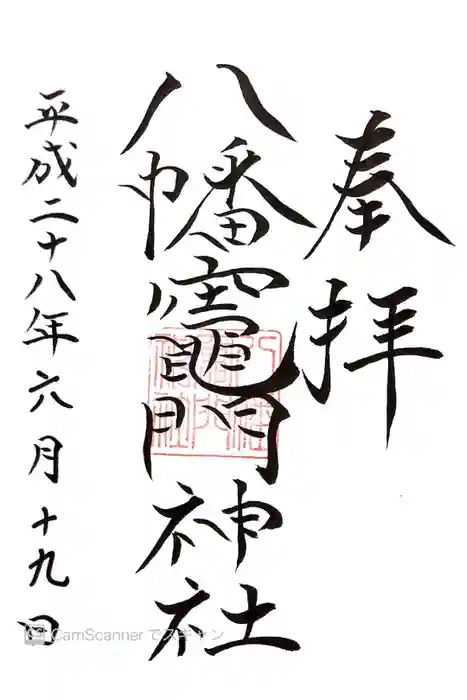 奉拝
八幡竈門神社
平成二十八年六月十九日
CamScannerでスキャン